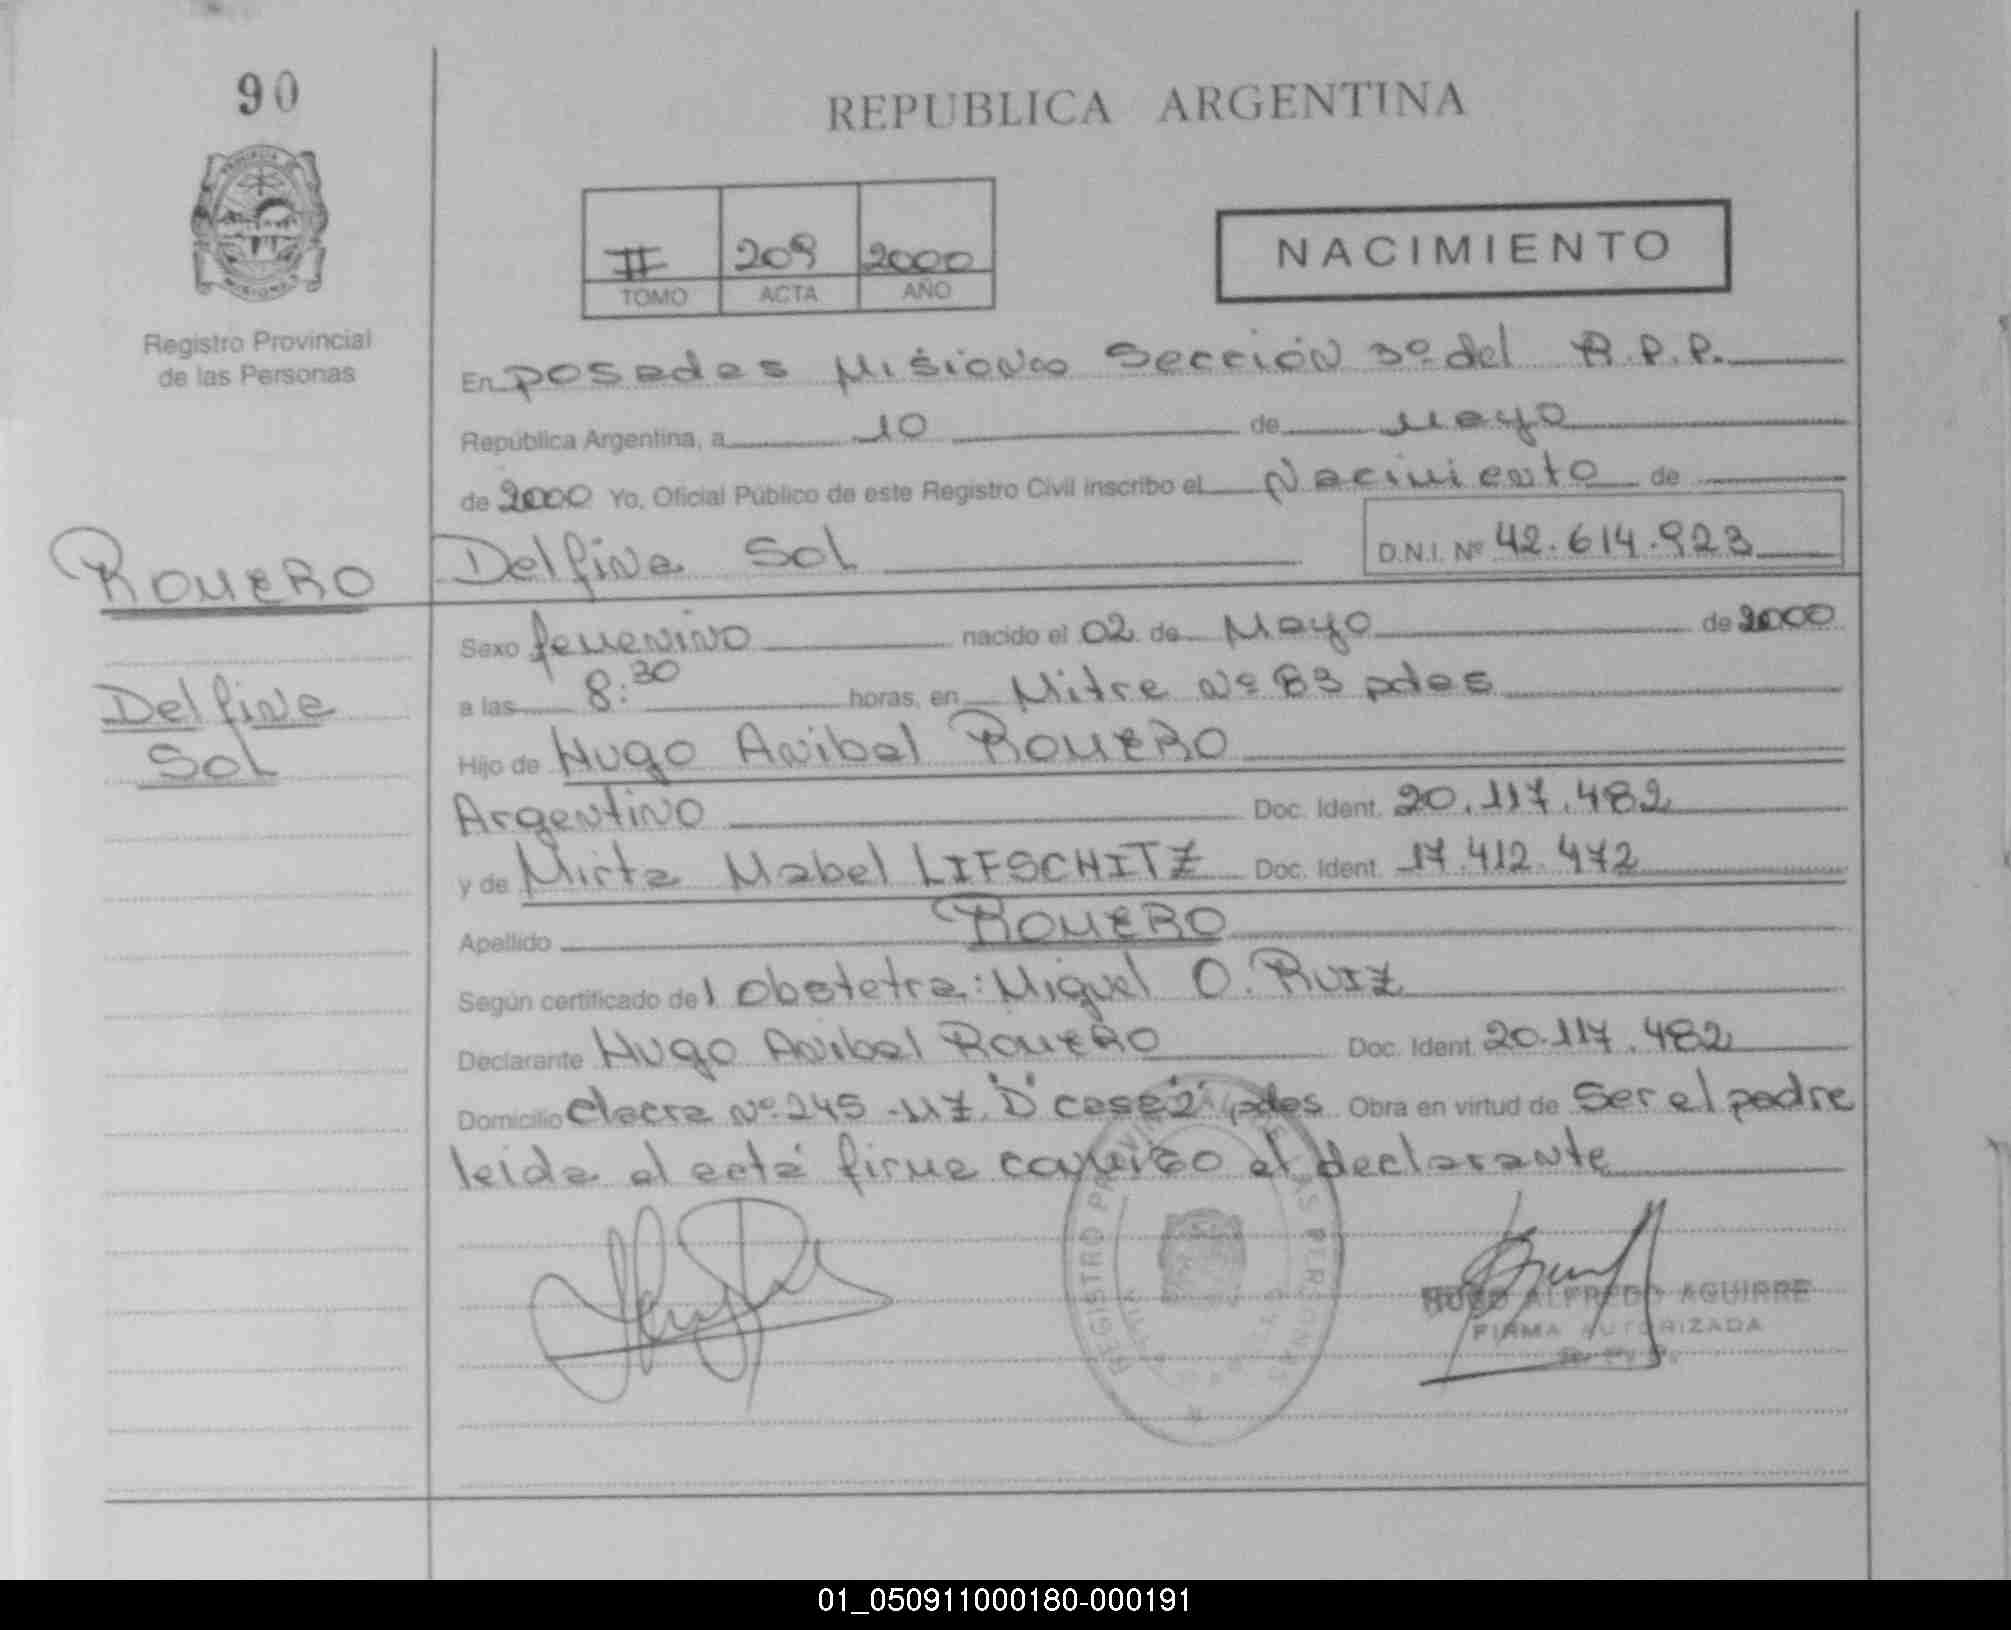 90
REPUBLICA ARGENTINA
II 209 2000
TOMO ACTA AÑO
NACIMIENTO
Registro Provincial
de las Personas
En Posadas Misiones Sección 3º del R.P.P.
República Argentina, a 10 de Mayo
de 2000 Yo, Oficial Público de este Registro Civil inscribo el Nacimiento de
ROMERO
Delfina Sol
D.N.I. Nº 42.614.923
Delfina
Sol
Sexo femenino nacido el 02 de Mayo de 2000
a las 8:30 horas, en Mitre Nº 83 pdas
Hijo de Hugo Anibal ROMERO
Argentino Doc. Ident. 20.117.482
y de Mirta Mabel LIFSCHITZ Doc. Ident. 17.412.472
Apellido ROMERO
Según certificado del Obstetra: Miguel O. RUIZ
Declarante Hugo Anibal ROMERO Doc. Ident. 20.117.482
Domicilio chacra Nº 245 MZ "D" casa 2 pdas Obra en virtud de Ser el padre
leida el acta firma conmigo el declarante
REGISTRO PROVINCIAL DE LAS PERSONAS
HUGO ALFREDO AGUIRRE
FIRMA AUTORIZADA
01_050911000180-000191